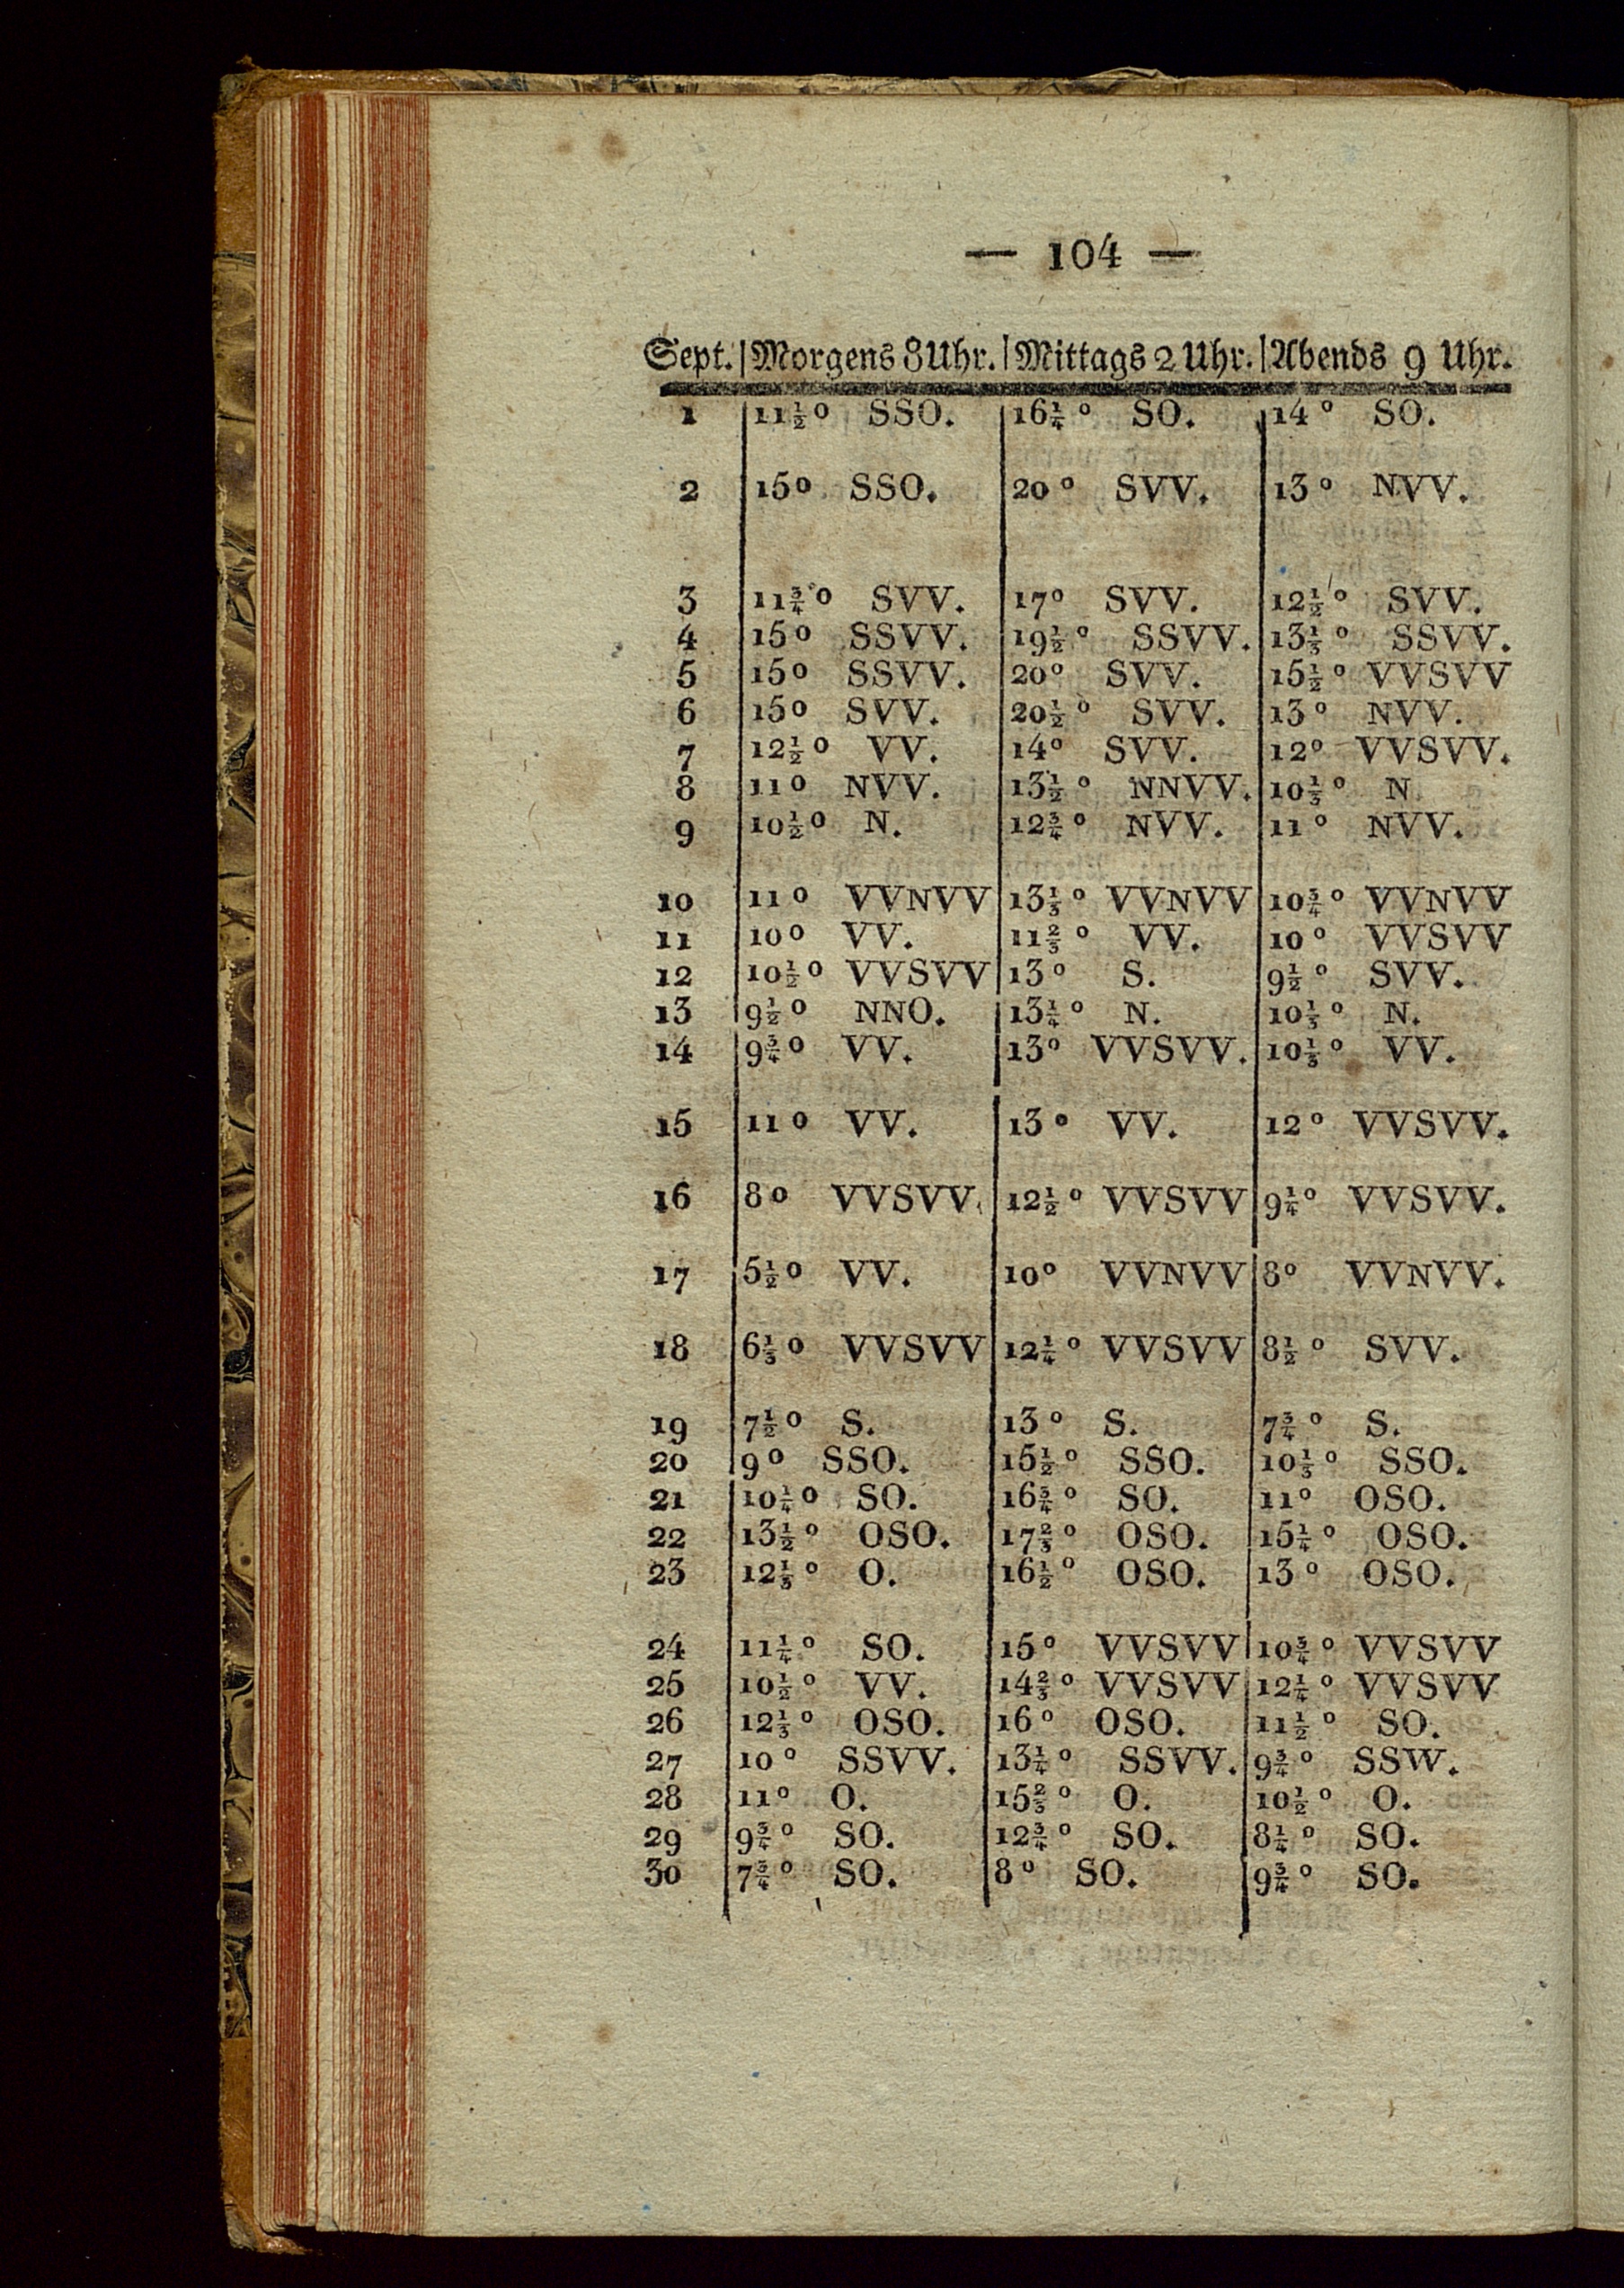 — 104 —
Sept. | Morgens 8 Uhr. | Mittags 2 Uhr. | Abends 9 Uhr.
1 | 11½° SSO. | 16¼° SO. | 14° SO.
2 | 15° SSO. | 20° SVV. | 13° NVV.
3 | 11¾° SVV. | 17° SVV. | 12½° SVV.
4 | 15° SSVV. | 19½° SSVV. | 13⅓° SSVV.
5 | 15° SSVV. | 20° SVV. | 15½° VVSVV
6 | 15° SVV. | 20½° SVV. | 13° NVV.
7 | 12½° VV. | 14° SVV. | 12° VVSVV.
8 | 11° NVV. | 13½° NNVV. | 10⅓° N
9 | 10½° N. | 12¾° NVV. | 11° NVV.
10 | 11° VVNVV | 13⅓° VVNVV | 10¾° VVNVV
11 | 10° VV. | 11⅔° VV. | 10° VVSVV
12 | 10½° VVSVV | 13° S. | 9½° SVV.
13 | 9½° NNO. | 13¼° N. | 10⅓° N.
14 | 9¾° VV. | 13° VVSVV. | 10⅓° VV.
15 | 11° VV. | 13° VV. | 12° VVSVV.
16 | 8° VVSVV. | 12½° VVSVV | 9¼° VVSVV.
17 | 5½° VV. | 10° VVNVV | 8° VVNVV.
18 | 6⅓° VVSVV | 12¼° VVSVV | 8½° SVV.
19 | 7½° S. | 13° S. | 7¾° S.
20 | 9° SSO. | 15½° SSO. | 10⅓° SSO.
21 | 10¼° SO. | 16¾° SO. | 11° OSO.
22 | 13½° OSO. | 17⅔° OSO. | 15¼° OSO.
23 | 12⅓° O. | 16½° OSO. | 13° OSO.
24 | 11¼° SO. | 15° VVSVV | 10¾° VVSVV
25 | 10½° VV. | 14⅔° VVSVV | 12¼° VVSVV
26 | 12⅓° OSO. | 16° OSO. | 11½° SO.
27 | 10° SSVV. | 13¼° SSVV. | 9¾° SSW.
28 | 11° O. | 15⅔° O. | 10½° O.
29 | 9¾° SO. | 12¾° SO. | 8¼° SO.
30 | 7¾° SO. | 8° SO. | 9¾° SO.